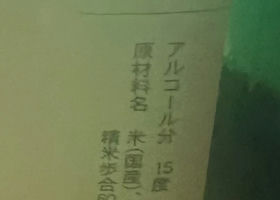 アルコール分 15度
原材料名 米(国産)、
精米歩合60